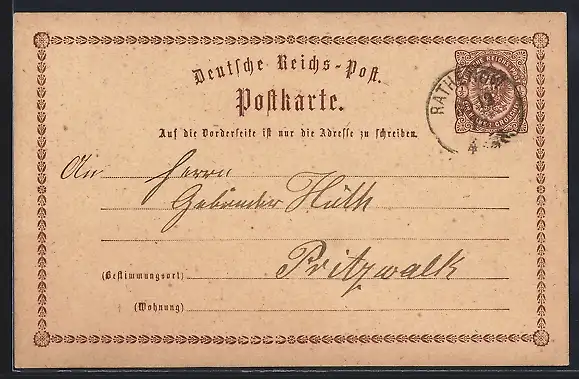 Deutsche Reichs-Post.
Postkarte.
Auf die Vorderseite ist nur die Adresse zu schreiben.
An Herrn
Gebrüder Hüth
Pritzwalk
(Bestimmungsort)
(Wohnung)